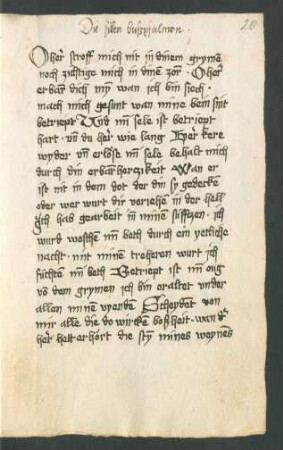 Die siben buszpsalmen
20
O her stroff mich nit in dinem grymen
noch zichtige mich in dinē zorn O her
erbarm dich myn wan ich bin siech
mach mich gesunt wan mine bein sint
betriept Und mī sele ist betriept
hart vn̄ du her wie lang Her kere
wyder vn̄ erlöse mī sele behalt mich
durch din erbarmherczikeit Wan er
ist nit in dem dot der din sy gedecke
oder wer wurt dir veriehen in der hell
Ich has gearbeit in minen süffczen ich
wurd weschen mī beth durch ein yecliche
nacht mit minen treheren wurt ich
füchten mī beth Betriept ist mī oug
vō dem grymen ich bin eraltet under
allen minen vyenden Scheydet von
mir alle die do wircken boszheit wan d'
her het erhört die stym mines weynens